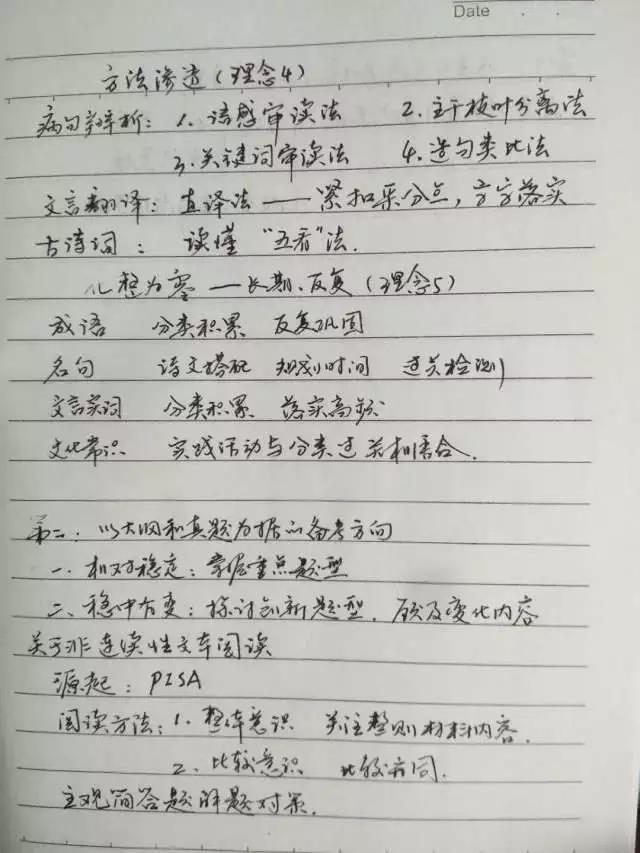 Date . .
方法渗透(理念4)
病句辨析: 1. 语感审读法 2. 主干枝叶分离法
3. 关键词审读法 4. 造句类比法
文言翻译: 直译法——紧扣采分点, 字字落实
古诗词: 读懂 "五看"法.
化整为零 — 长期、反复(理念5)
成语 分类积累 反复巩固
名句 诗文搭配 规划时间 过关检测
文言实词 分类积累 落实高频
文化常识 实践活动与分类过关相结合.
第二: 以大纲和真题为据的备考方向
一. 相对稳定: 掌握重点题型
二. 稳中有变: 探讨创新题型, 顾及变化内容
关于非连续性文本阅读
源起: PISA
阅读方法: 1. 整体意识 关注整则材料内容.
2. 比较意识 比较异同.
主观简答题解题对策.